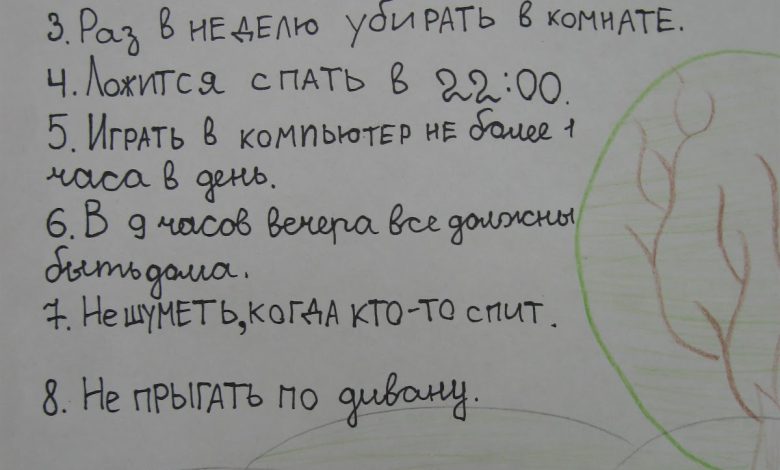 3. Раз в неделю убирать в комнате.
4. Ложится спать в 22:00.
5. Играть в компьютер не более 1
часа в день.
6. В 9 часов вечера все должны
быть дома.
7. Не шуметь, когда кто-то спит.
8. Не прыгать по дивану.